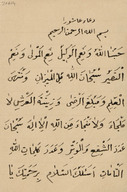 دعاء عاشورا
بسم الله الرحمن الرحيم
حسبنا الله ونعم الوكيل نعم المولى ونعم
النصير سبحان الله ملء الميزان ومنتهى
العلم ومبلغ الرضى وزينة العرش لا
ملجأ ولا منجا من الله الا اليه سبحان
الله عدد الشفع والوتر وعدد كلمات
الله التامات اسئلك السلام برحمتك يا